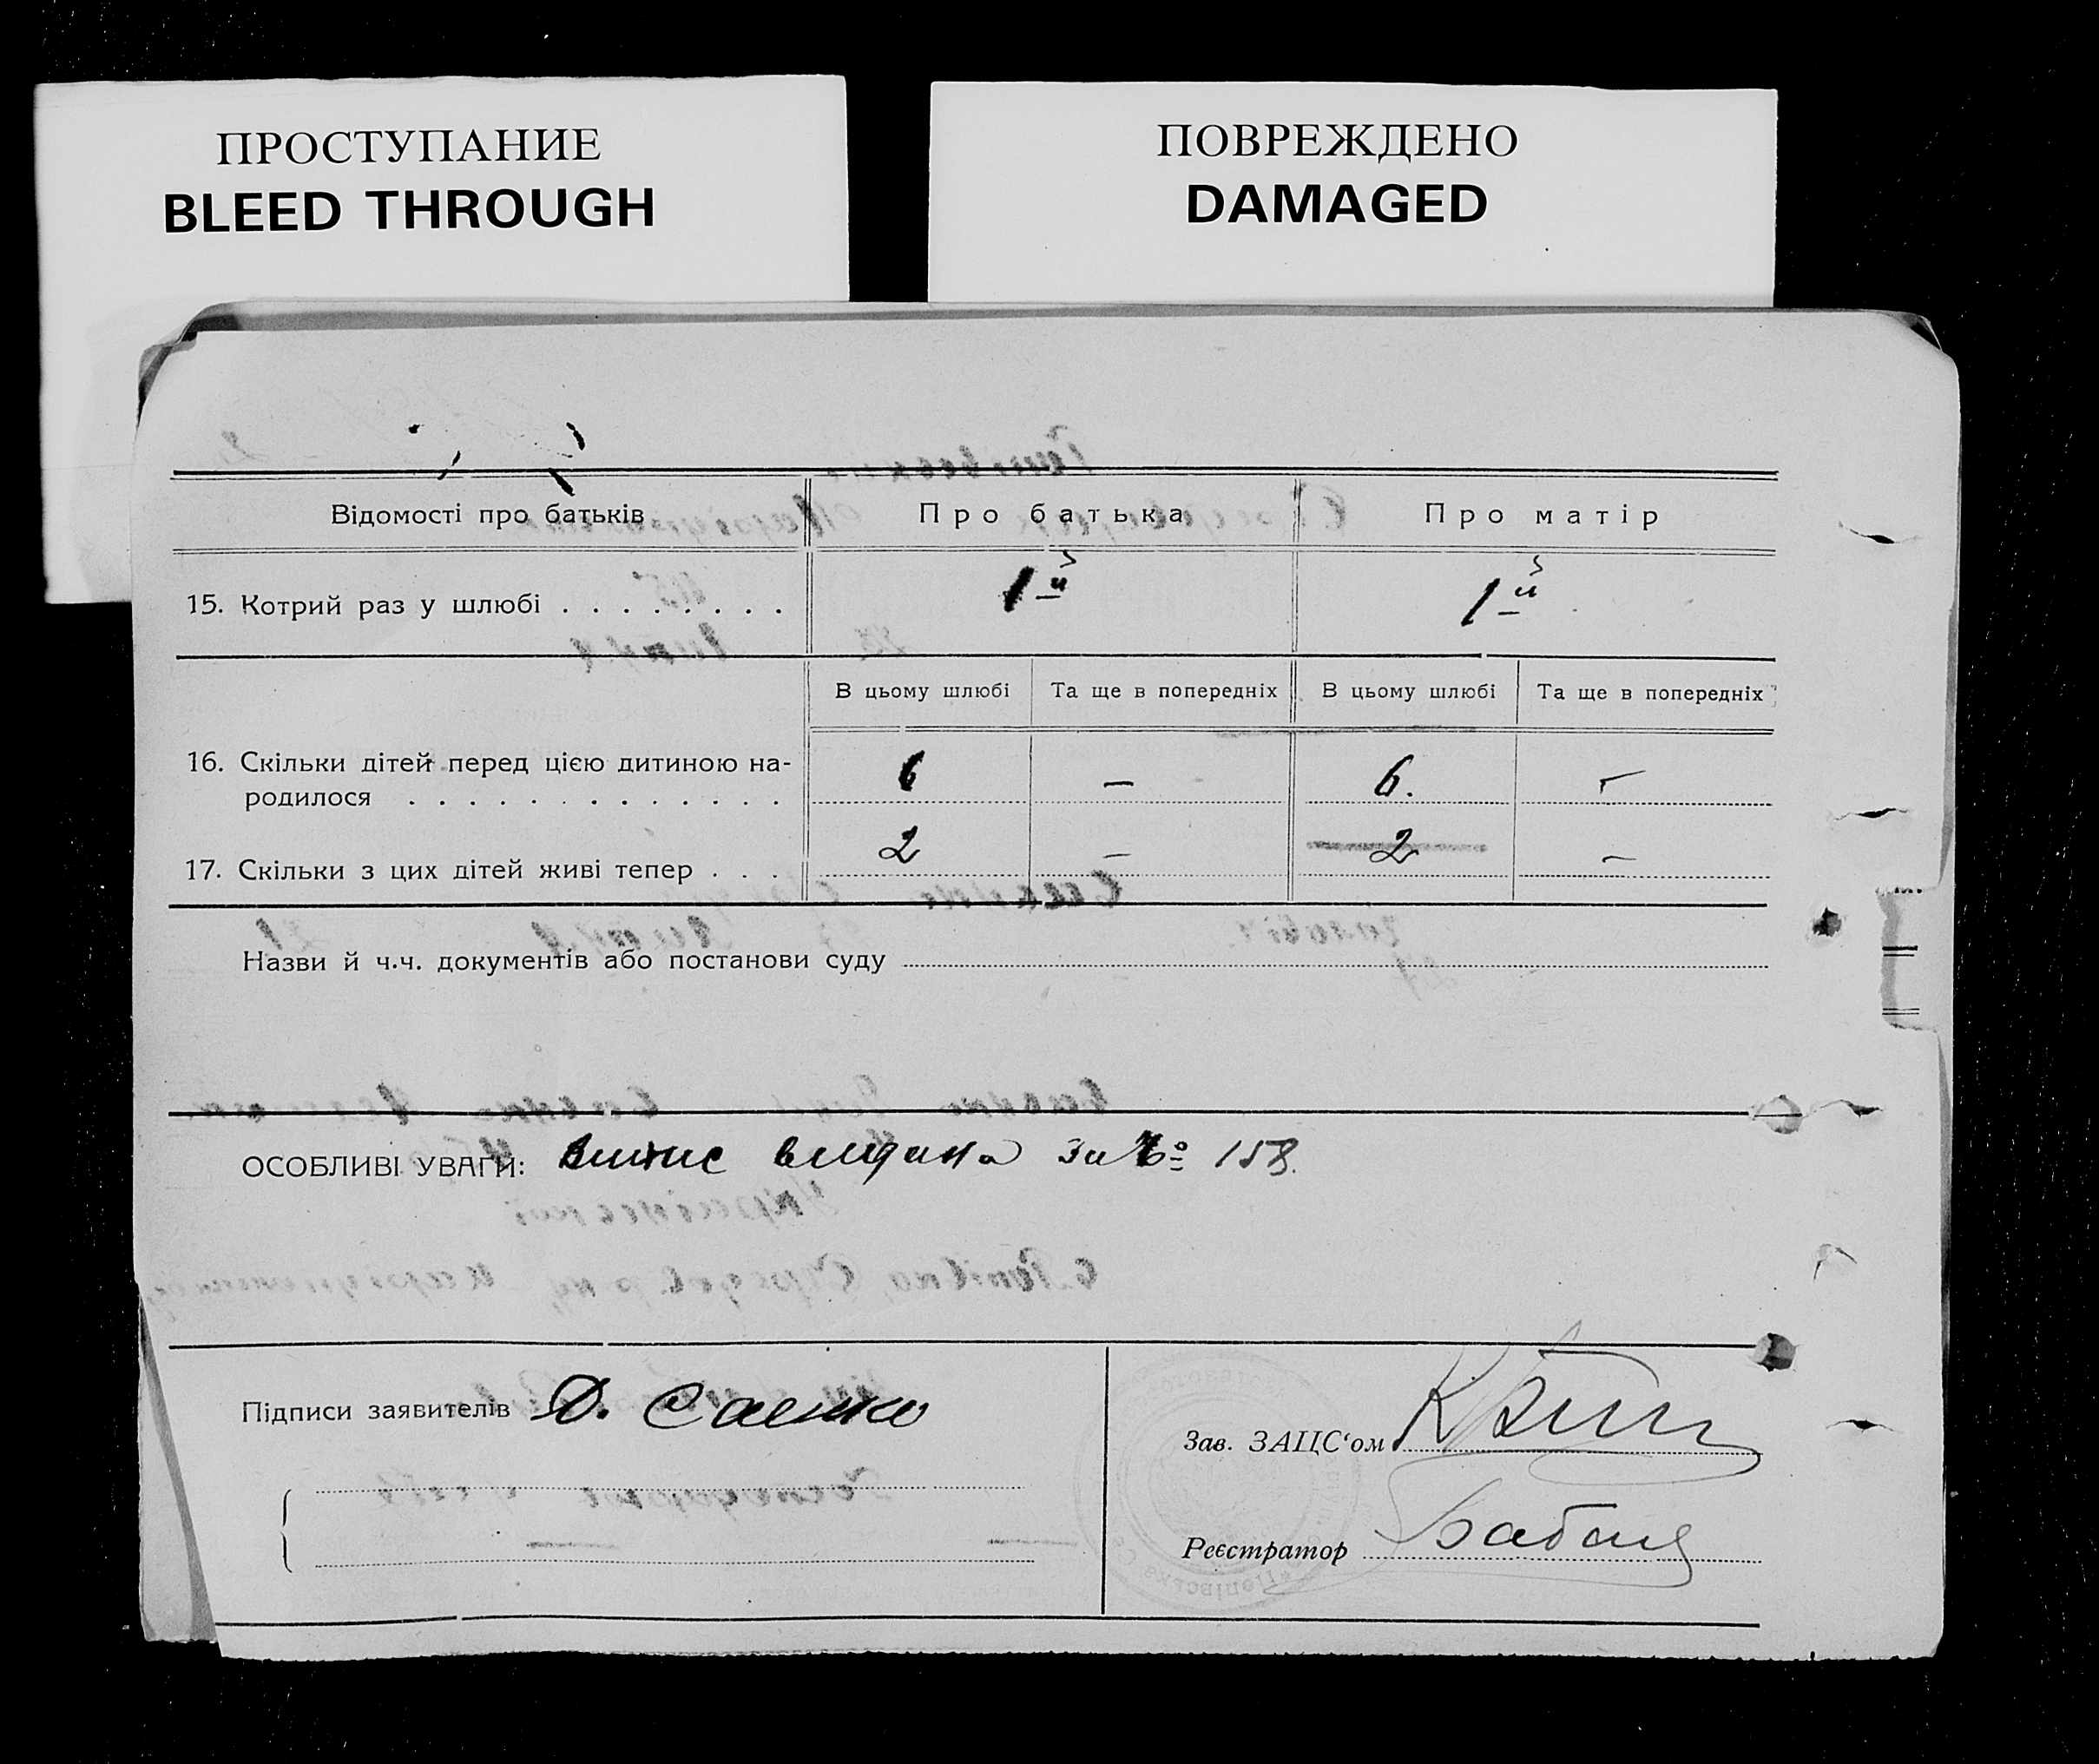 ПРОСТУПАНИЕ
BLEED THROUGH
ПОВРЕЖДЕНО
DAMAGED
Відомості про батьків Про батька Про матір
15. Котрий раз у шлюбі . . . . . . . . 1й 1й
В цьому шлюбі Та ще в попередніх В цьому шлюбі Та ще в попередніх
16. Скільки дітей перед цією дитиною на-
родилося . . . . . . . . . . . . . 6 — 6. —
17. Скільки з цих дітей живі тепер . . . 2 — 2 —
Назви й ч.ч. документів або постанови суду
ОСОБЛИВІ УВАГИ: Випис видана за № 158.
Підписи заявителів Д. Саенко
Зав. ЗАЦС'ом
Реєстратор